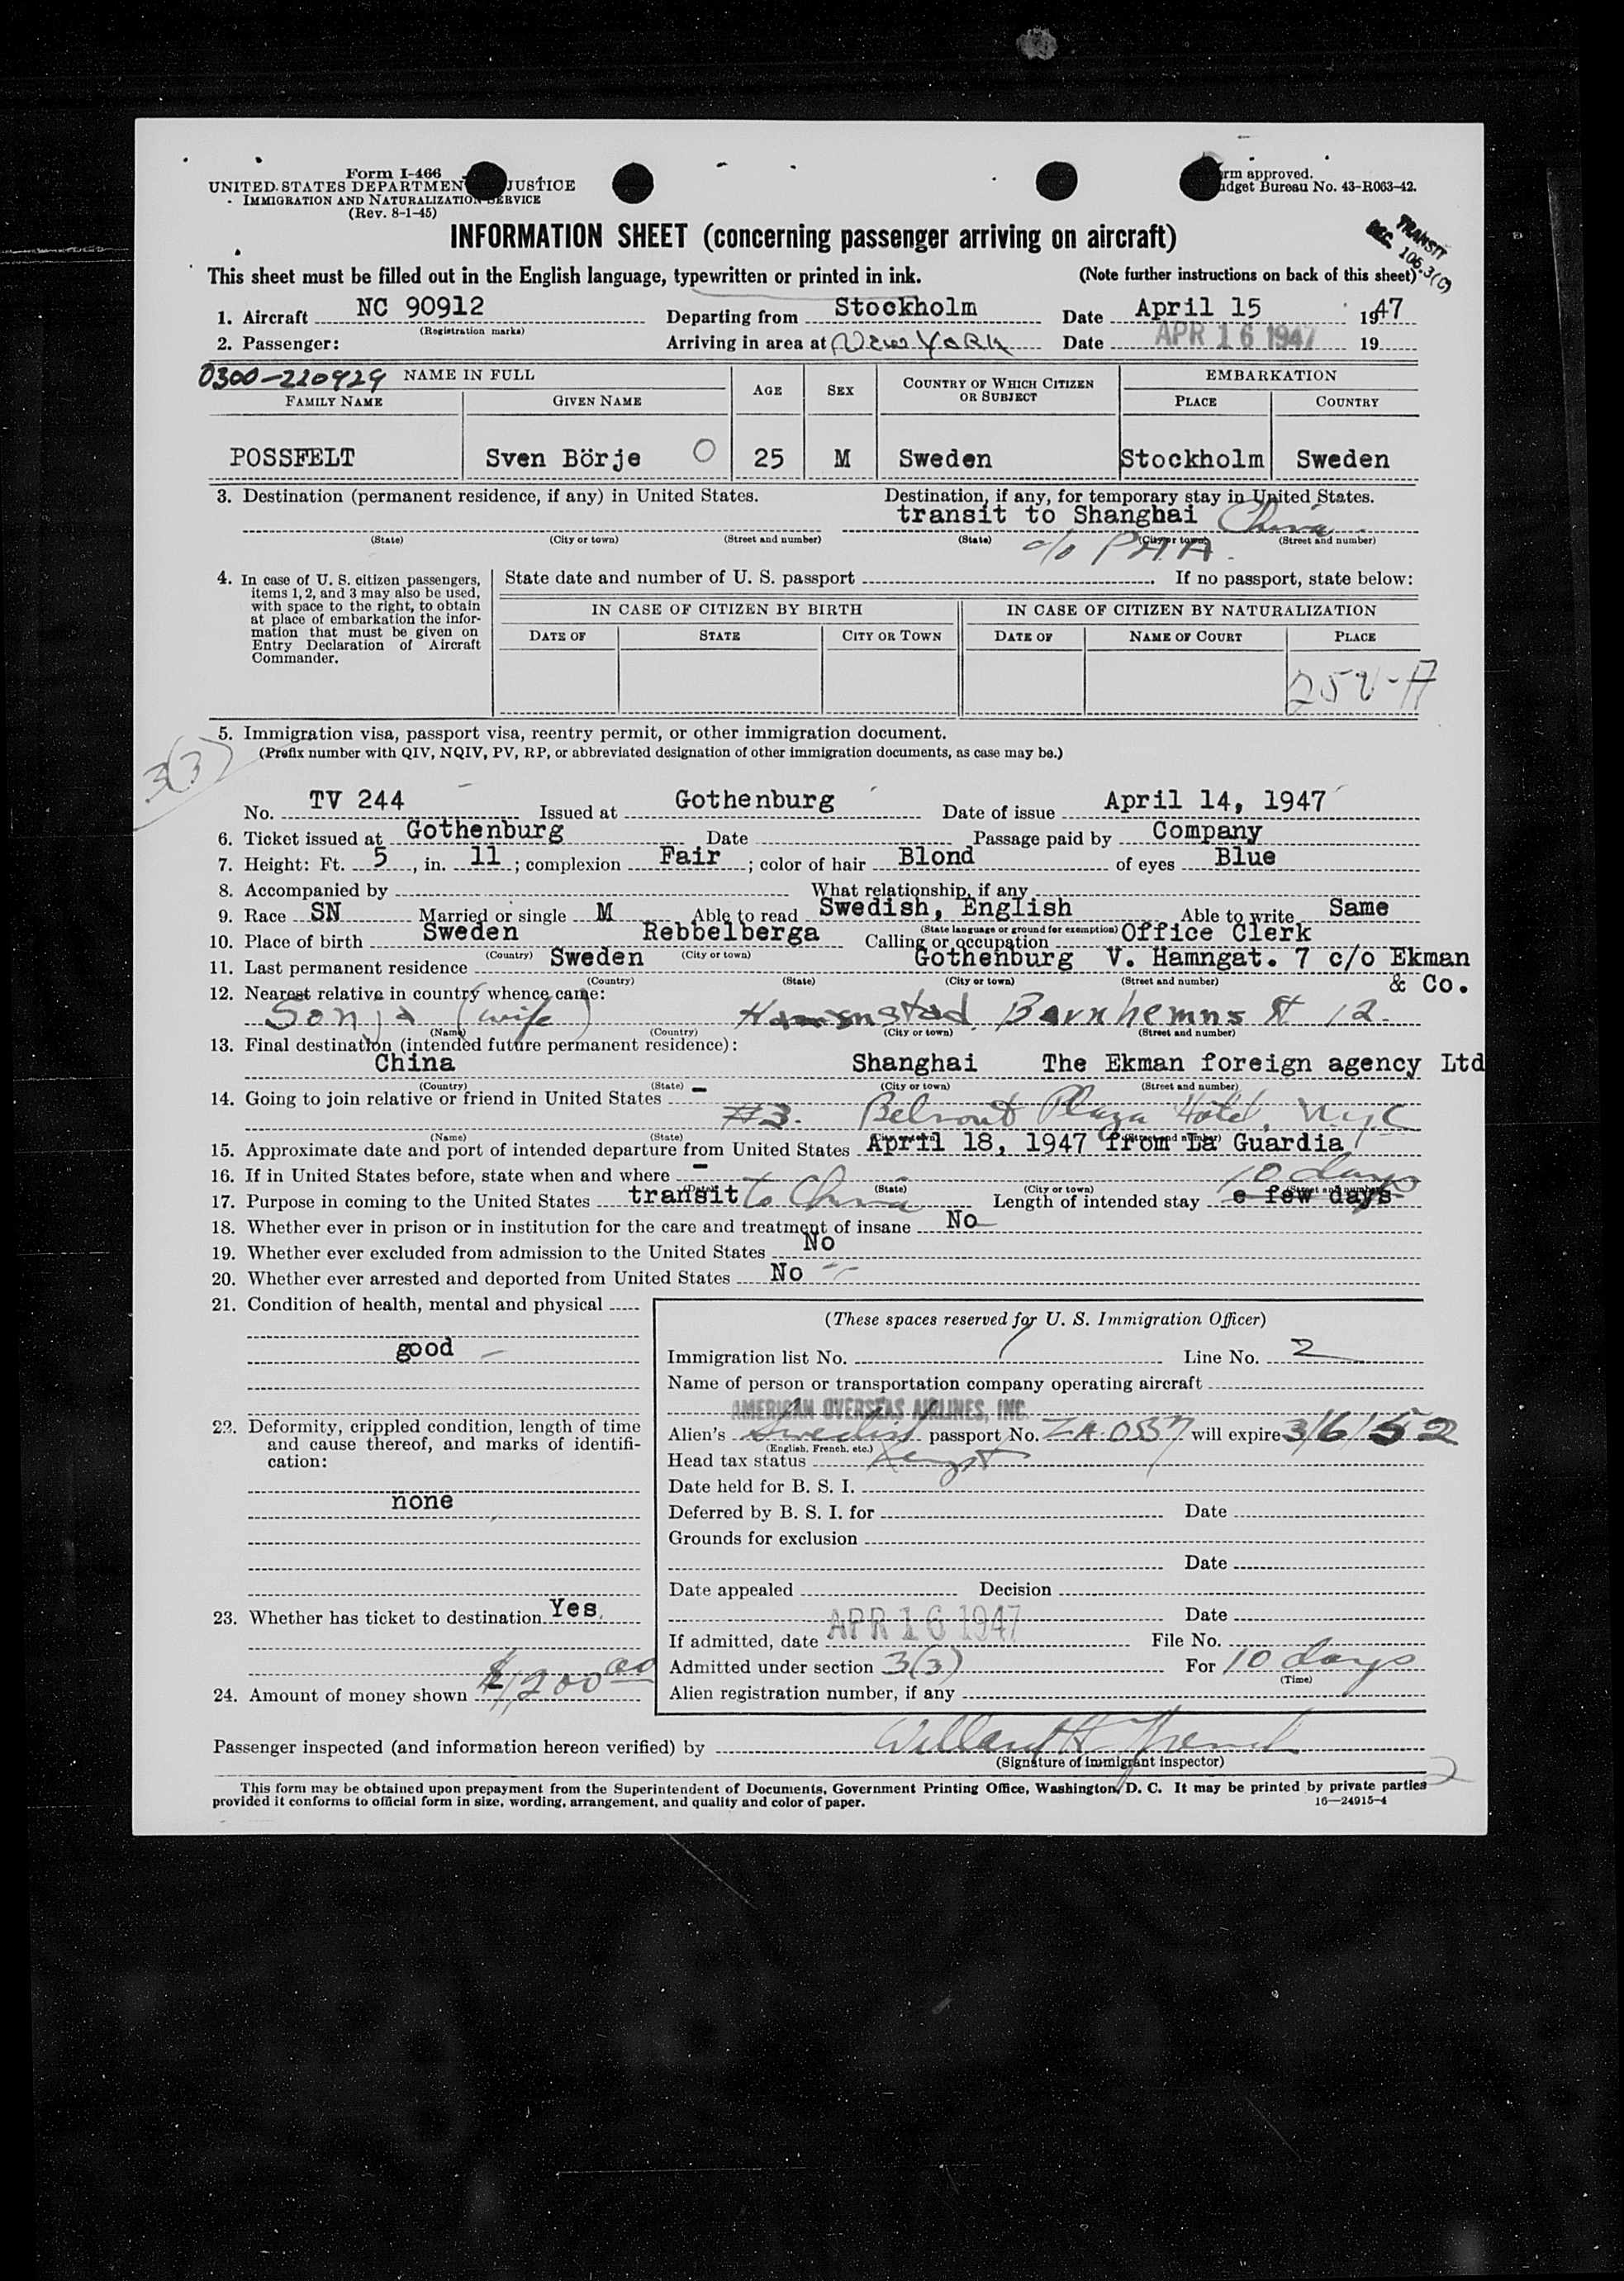 Form I-466
UNITED STATES DEPARTMENT JUSTICE
IMMIGRATION AND NATURALIZATION SERVICE
(Rev. 8-1-45)
rm approved.
udget Bureau No. 43-R063-42.
TRANSIT
SEC. 106.3(C)
INFORMATION SHEET (concerning passenger arriving on aircraft)
This sheet must be filled out in the English language, typewritten or printed in ink. (Note further instructions on back of this sheet)
1. Aircraft NC 90912 Departing from Stockholm Date April 15 1947
(Registration marks)
2. Passenger: Arriving in area at NEW YORK Date APR 16 1947 19
0300-220929 NAME IN FULL AGE SEX COUNTRY OF WHICH CITIZEN OR SUBJECT EMBARKATION
FAMILY NAME GIVEN NAME PLACE COUNTRY
POSSFELT Sven Börje O 25 M Sweden Stockholm Sweden
3. Destination (permanent residence, if any) in United States. Destination, if any, for temporary stay in United States.
transit to Shanghai China
(State) (City or town) (Street and number) (State) (City or town) (Street and number)
c/o PAA.
4. In case of U. S. citizen passengers, items 1, 2, and 3 may also be used, with space to the right, to obtain at place of embarkation the information that must be given on Entry Declaration of Aircraft Commander.
State date and number of U. S. passport If no passport, state below:
IN CASE OF CITIZEN BY BIRTH IN CASE OF CITIZEN BY NATURALIZATION
DATE OF STATE CITY OR TOWN DATE OF NAME OF COURT PLACE
5. Immigration visa, passport visa, reentry permit, or other immigration document.
(Prefix number with QIV, NQIV, PV, RP, or abbreviated designation of other immigration documents, as case may be.)
3(3)
No. TV 244 Issued at Gothenburg Date of issue April 14, 1947
6. Ticket issued at Gothenburg Date Passage paid by Company
7. Height: Ft. 5, in. 11; complexion Fair; color of hair Blond of eyes Blue
8. Accompanied by What relationship, if any
9. Race SN Married or single M Able to read Swedish, English Able to write Same
(State language or ground for exemption)
10. Place of birth Sweden Rebbelberga Calling or occupation Office Clerk
(Country) (City or town)
11. Last permanent residence Sweden Gothenburg V. Hamngat. 7 c/o Ekman & Co.
(Country) (State) (City or town) (Street and number)
12. Nearest relative in country whence came:
Sonja (wife) St 12
(Name) (Country) (City or town) (Street and number)
13. Final destination (intended future permanent residence):
China Shanghai The Ekman foreign agency Ltd
(Country) (State) (City or town) (Street and number)
14. Going to join relative or friend in United States -
#3. Belmont Plaza Hotel, N.Y.C
(Name) (State) (City or town) (Street and number)
15. Approximate date and port of intended departure from United States April 18, 1947 from La Guardia
16. If in United States before, state when and where -
(Date) (State) (City or town) (Street and number)
10 days
17. Purpose in coming to the United States transit to China Length of intended stay e few days
18. Whether ever in prison or in institution for the care and treatment of insane No
19. Whether ever excluded from admission to the United States No
20. Whether ever arrested and deported from United States No
21. Condition of health, mental and physical
good
22. Deformity, crippled condition, length of time and cause thereof, and marks of identification:
none
23. Whether has ticket to destination Yes
24. Amount of money shown $1,200 00
(These spaces reserved for U. S. Immigration Officer)
Immigration list No. 1 Line No. 2
Name of person or transportation company operating aircraft
AMERICAN OVERSEAS AIRLINES, INC.
Alien's Swedish passport No. will expire 3/6/52
(English, French, etc.)
Head tax status
Date held for B. S. I.
Deferred by B. S. I. for Date
Grounds for exclusion
Date
Date appealed Decision
Date
If admitted, date APR 16 1947 File No.
Admitted under section 3(3) For 10 days
(Time)
Alien registration number, if any
Passenger inspected (and information hereon verified) by
(Signature of immigrant inspector)
This form may be obtained upon prepayment from the Superintendent of Documents, Government Printing Office, Washington, D. C. It may be printed by private parties
provided it conforms to official form in size, wording, arrangement, and quality and color of paper. 16—24915-4